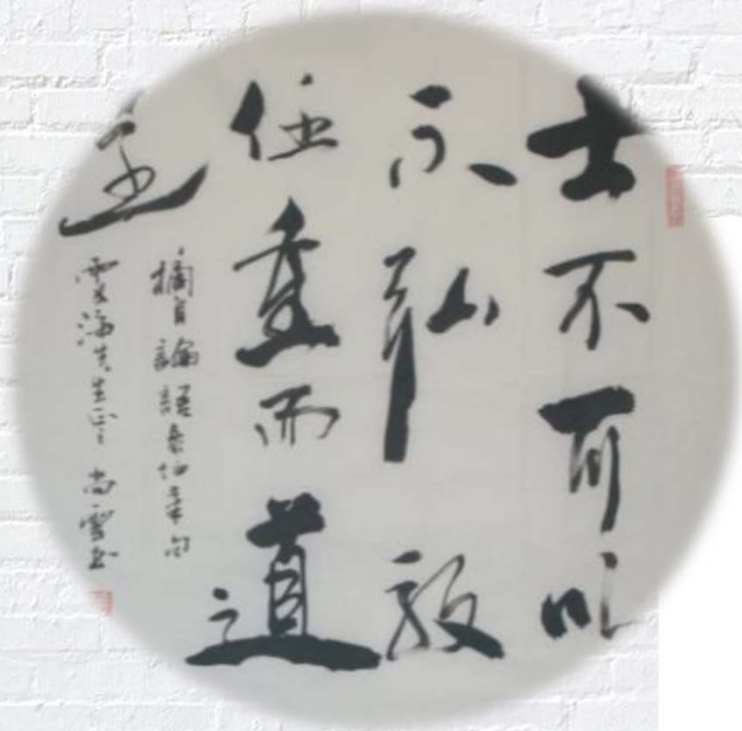 士不可以
不弘毅
任重而道
远
摘自論語泰伯章句
雲海先生正 尚雲书